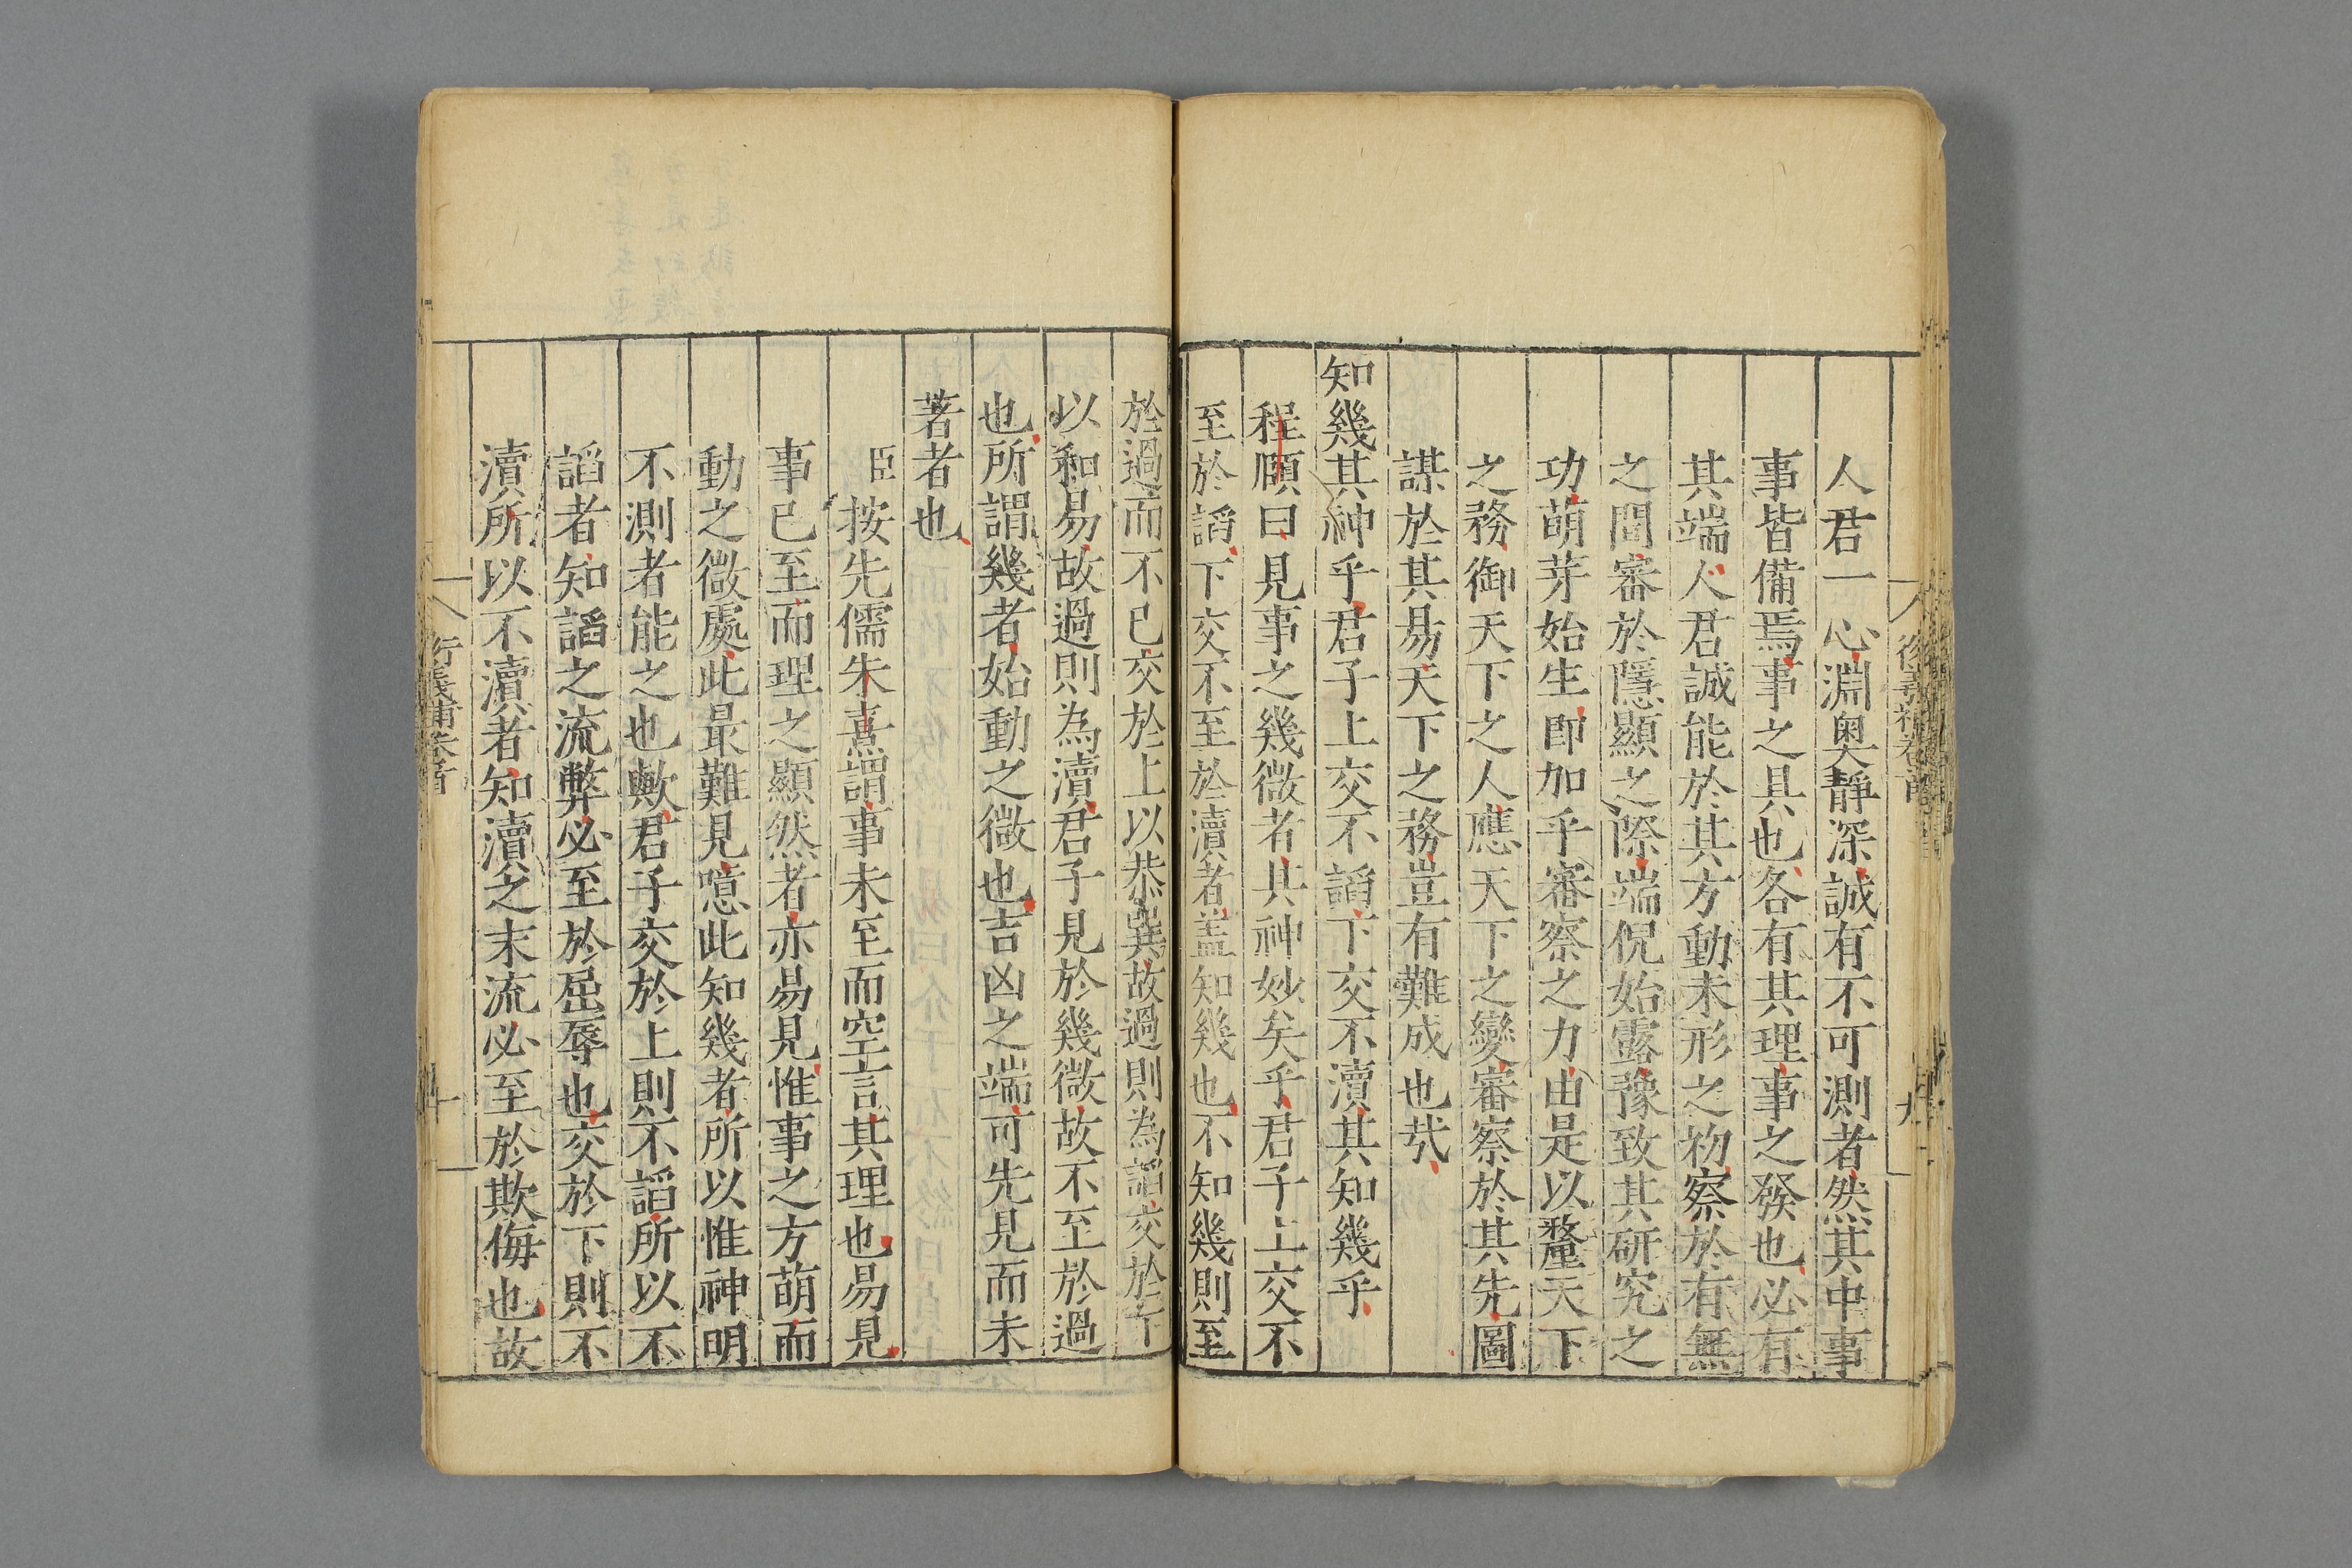 人君一心淵奧靜深誠有不可測者然其中事
事皆備焉事之具也各有其理事之發也必有
其端人君誠能於其方動未形之初察於有無
之間審於隱顯之際端倪始露豫致其研究之
功萌芽始生即加乎審察之力由是以釐天下
之務御天下之人應天下之變審察於其先圖
謀於其易天下之務豈有難成也㢤
知幾其神乎君子上交不諂下交不瀆其知幾乎
程頤曰見事之幾微者其神妙矣乎君子上交不
至於諂下交不至於瀆者盖知幾也不知幾則至
於過而不已交於上以恭巽故過則為諂交於下
以和易故過則為瀆君子見於幾微故不至於過
也所謂幾者始動之微也吉凶之端可先見而未
著者也
臣按先儒朱熹謂事未至而空言其理也易見
事已至而理之顯然者亦易見惟事之方萌而
動之微處此最難見噫此知幾者所以惟神明
不測者能之也歟君子交於上則不諂所以不
諂者知諂之流弊必至於屈辱也交於下則不
瀆所以不瀆者知瀆之末流必至於欺侮也故
衍義補卷首
十